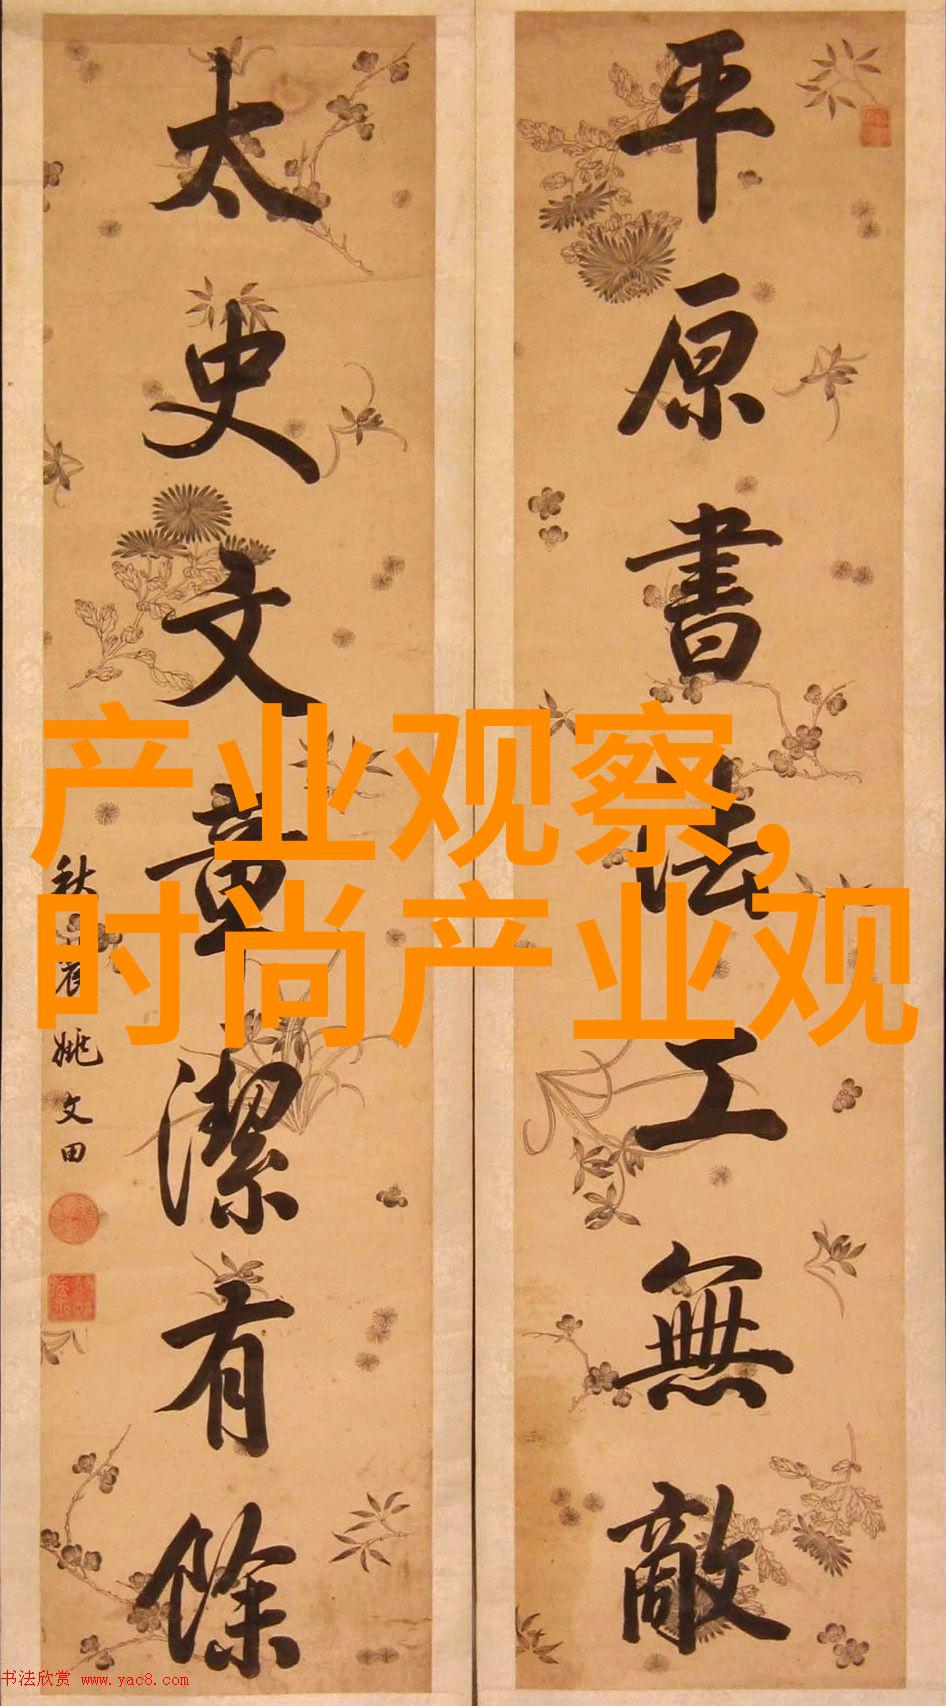 平原書法工無敵
太史文章潔有餘
姚文田
产业观察,
时尚产业观
书法欣赏 www.yac8.com